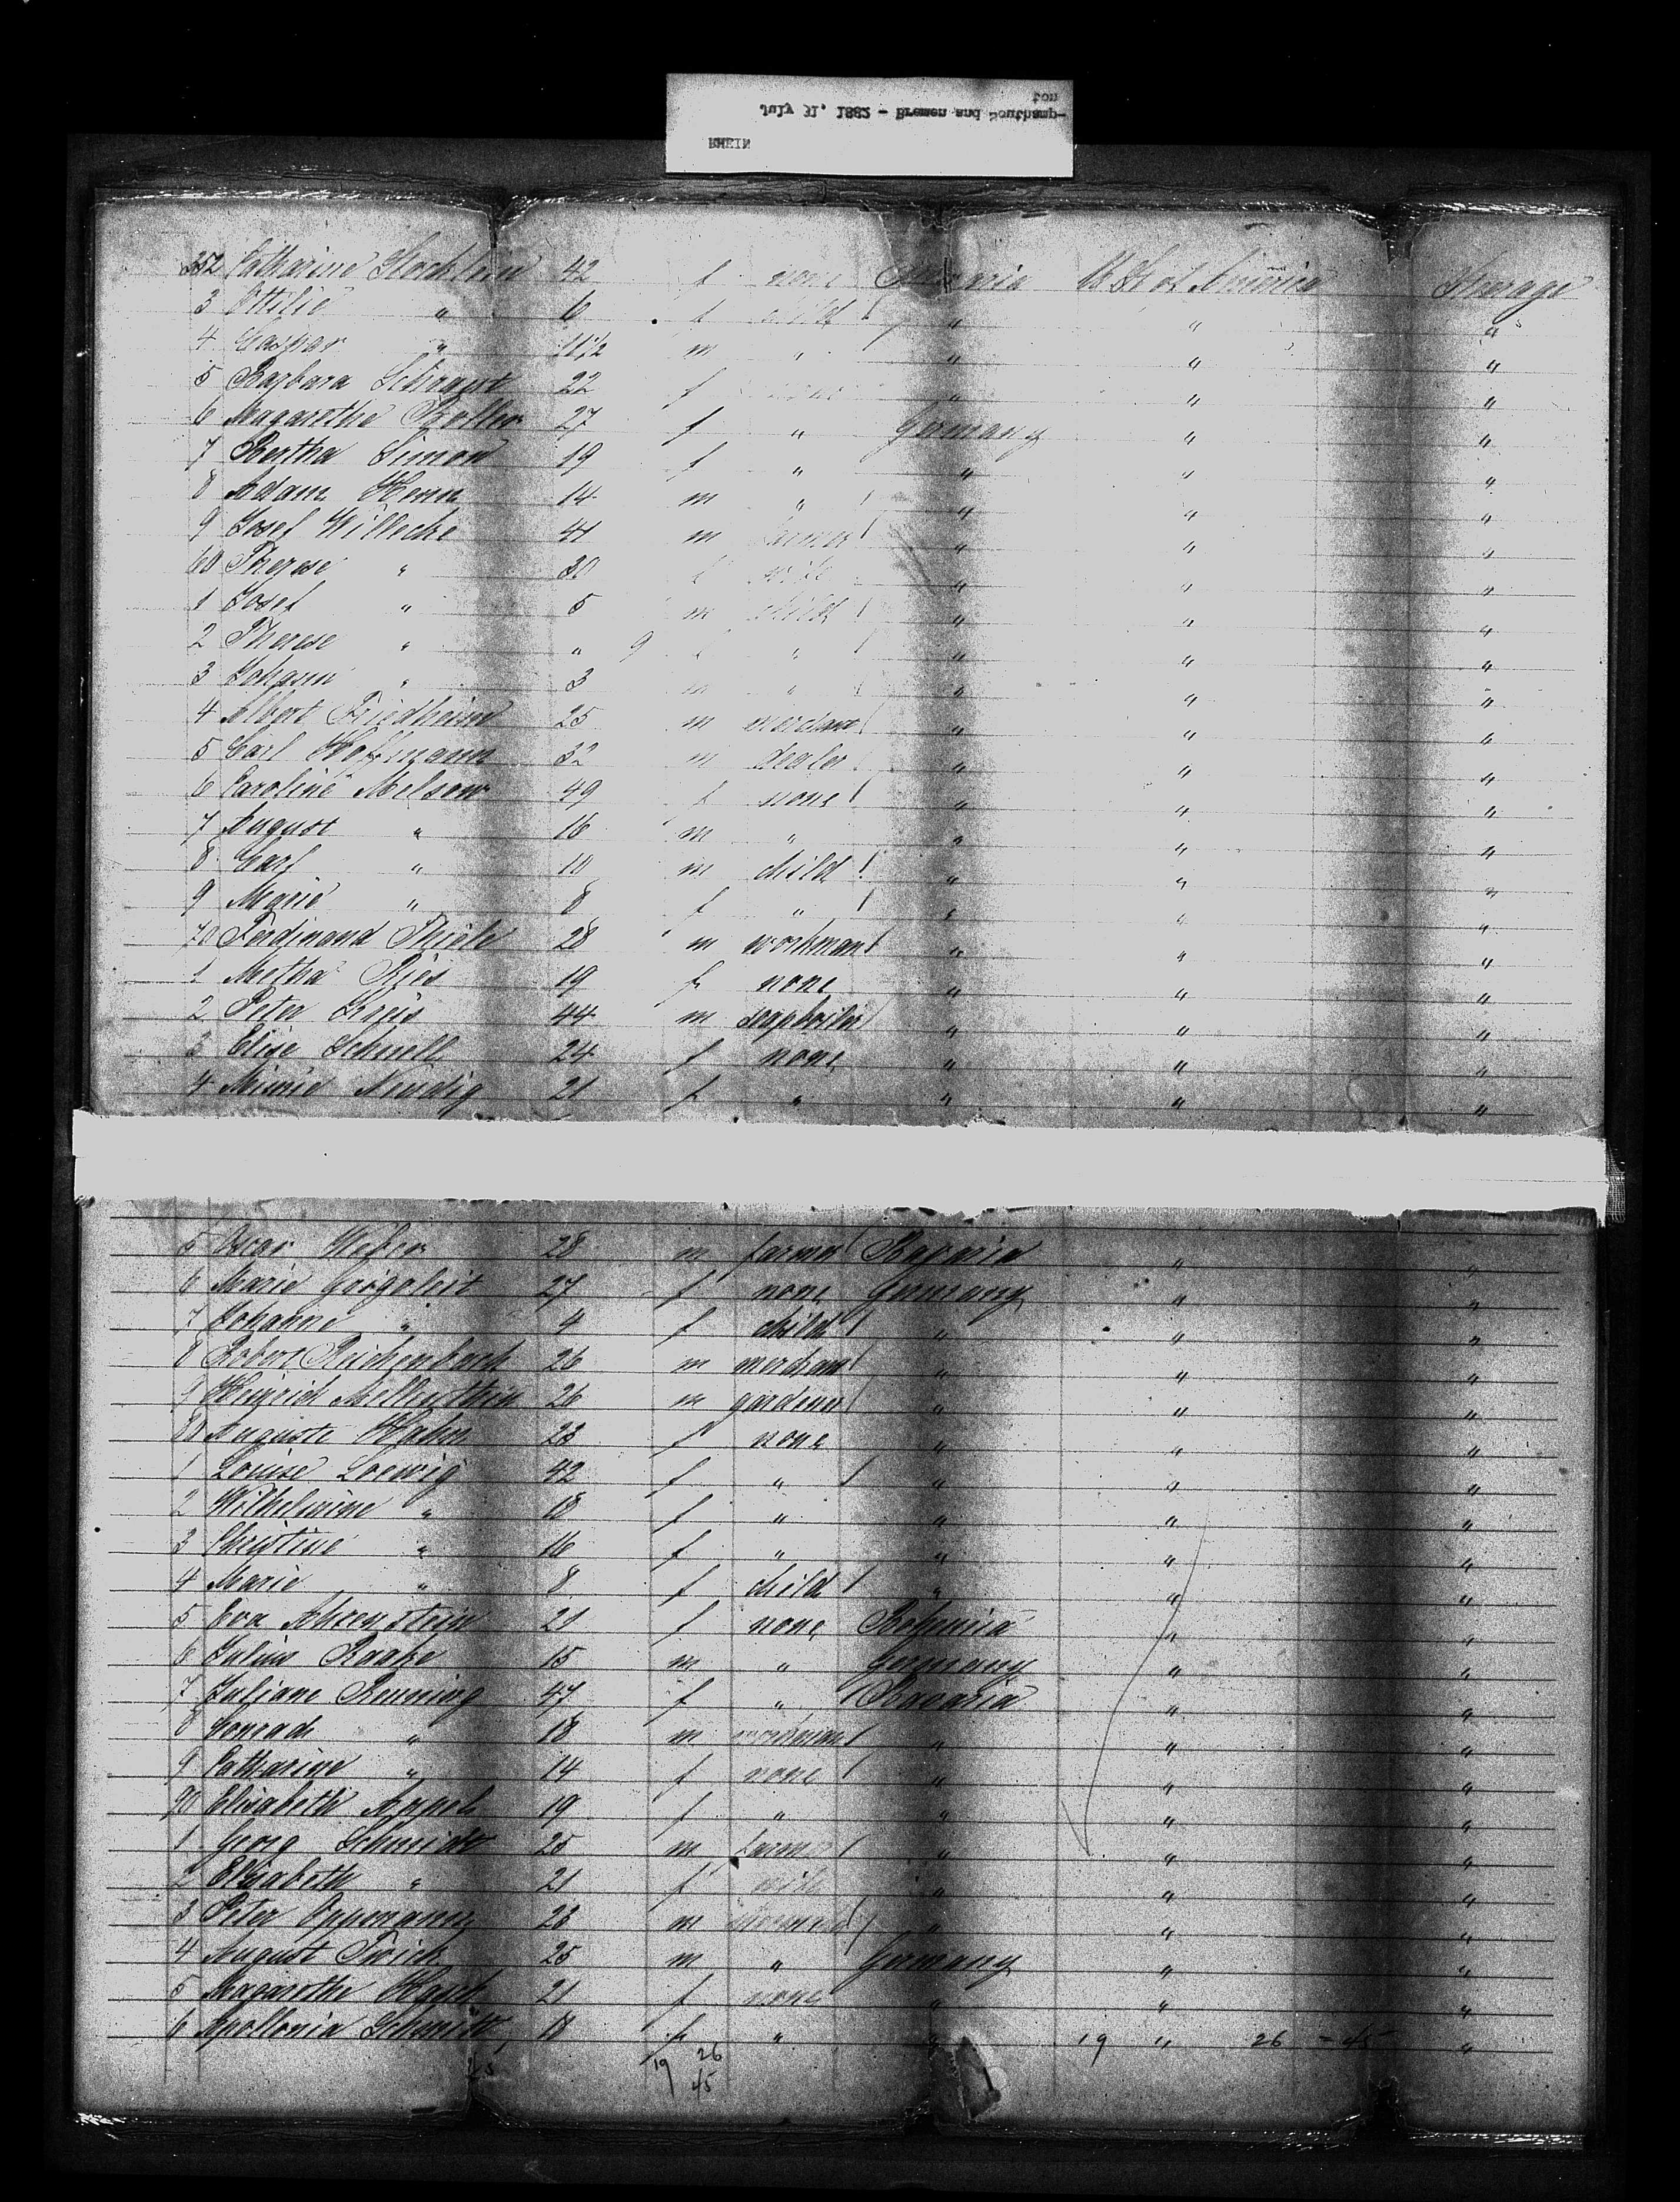 RHEIN
July 31, 1882 - Bremen and Southamp-
ton
352 Catharine 42 f none U St of America Steerage
3 Ottilie " 6 f child " " "
4 Caspar " 11/12 m " " " "
5 Barbara 22 f " " "
6 Magarethe 27 f " Germany " "
7 Bertha Simon 19 f " " " "
8 Adam Henn 14 m " " " "
9 Josef Willecke 41 m farmer " " "
60 Therese " 30 f wife " " "
1 Josef " 5 m child " " "
2 Therese " " 9 f " " " "
3 Johann " 3 m " " " "
4 Albert Friedheim 25 m merchant " " "
5 Carl Hoffmann 32 m dealer " " "
6 Caroline Melsow 49 f none " " "
7 August " 16 m " " " "
8 Carl " 10 m child " " "
9 Marie " 8 f " " " "
70 Ferdinand Thiele 28 m workman " " "
1 Metha Ries 19 f none " " "
2 Peter Kreis 44 m soapboiler " " "
3 Elise Schnell 24 f none " " "
4 Minnie 21 f " " " "
5 Oscar Weber 28 m farmer Bavaria " "
6 Marie Grigoleit 27 f none Germany " "
7 Johanne " 4 f child " " "
8 Robert Reichenbach 26 m merchant " " "
9 Heinrich Mellenthin 26 m gardener " " "
80 Auguste Hahn 23 f none " " "
1 Louise Loewig 42 f " " " "
2 Wilhelmine " 18 f " " " "
3 Christine " 16 f " " " "
4 Marie " 8 f child " " "
5 Eva 21 f none Bohemia " "
6 Julius Raake 15 m " Germany " "
7 Juliane Renning 47 f " Bavaria " "
8 Conrad " 18 m workman " " "
9 Catharine " 14 f none " " "
90 Elisabeth Appel 19 f " " " "
1 Georg Schmidt 25 m farmer " " "
2 Elisabeth " 21 f wife " " "
3 Peter 23 m " " "
4 August 25 m " Germany " "
5 Magarethe 21 f none " " "
6 Apollonia Schmidt 18 f " " 19 " 26 = 45 "
19 26
45